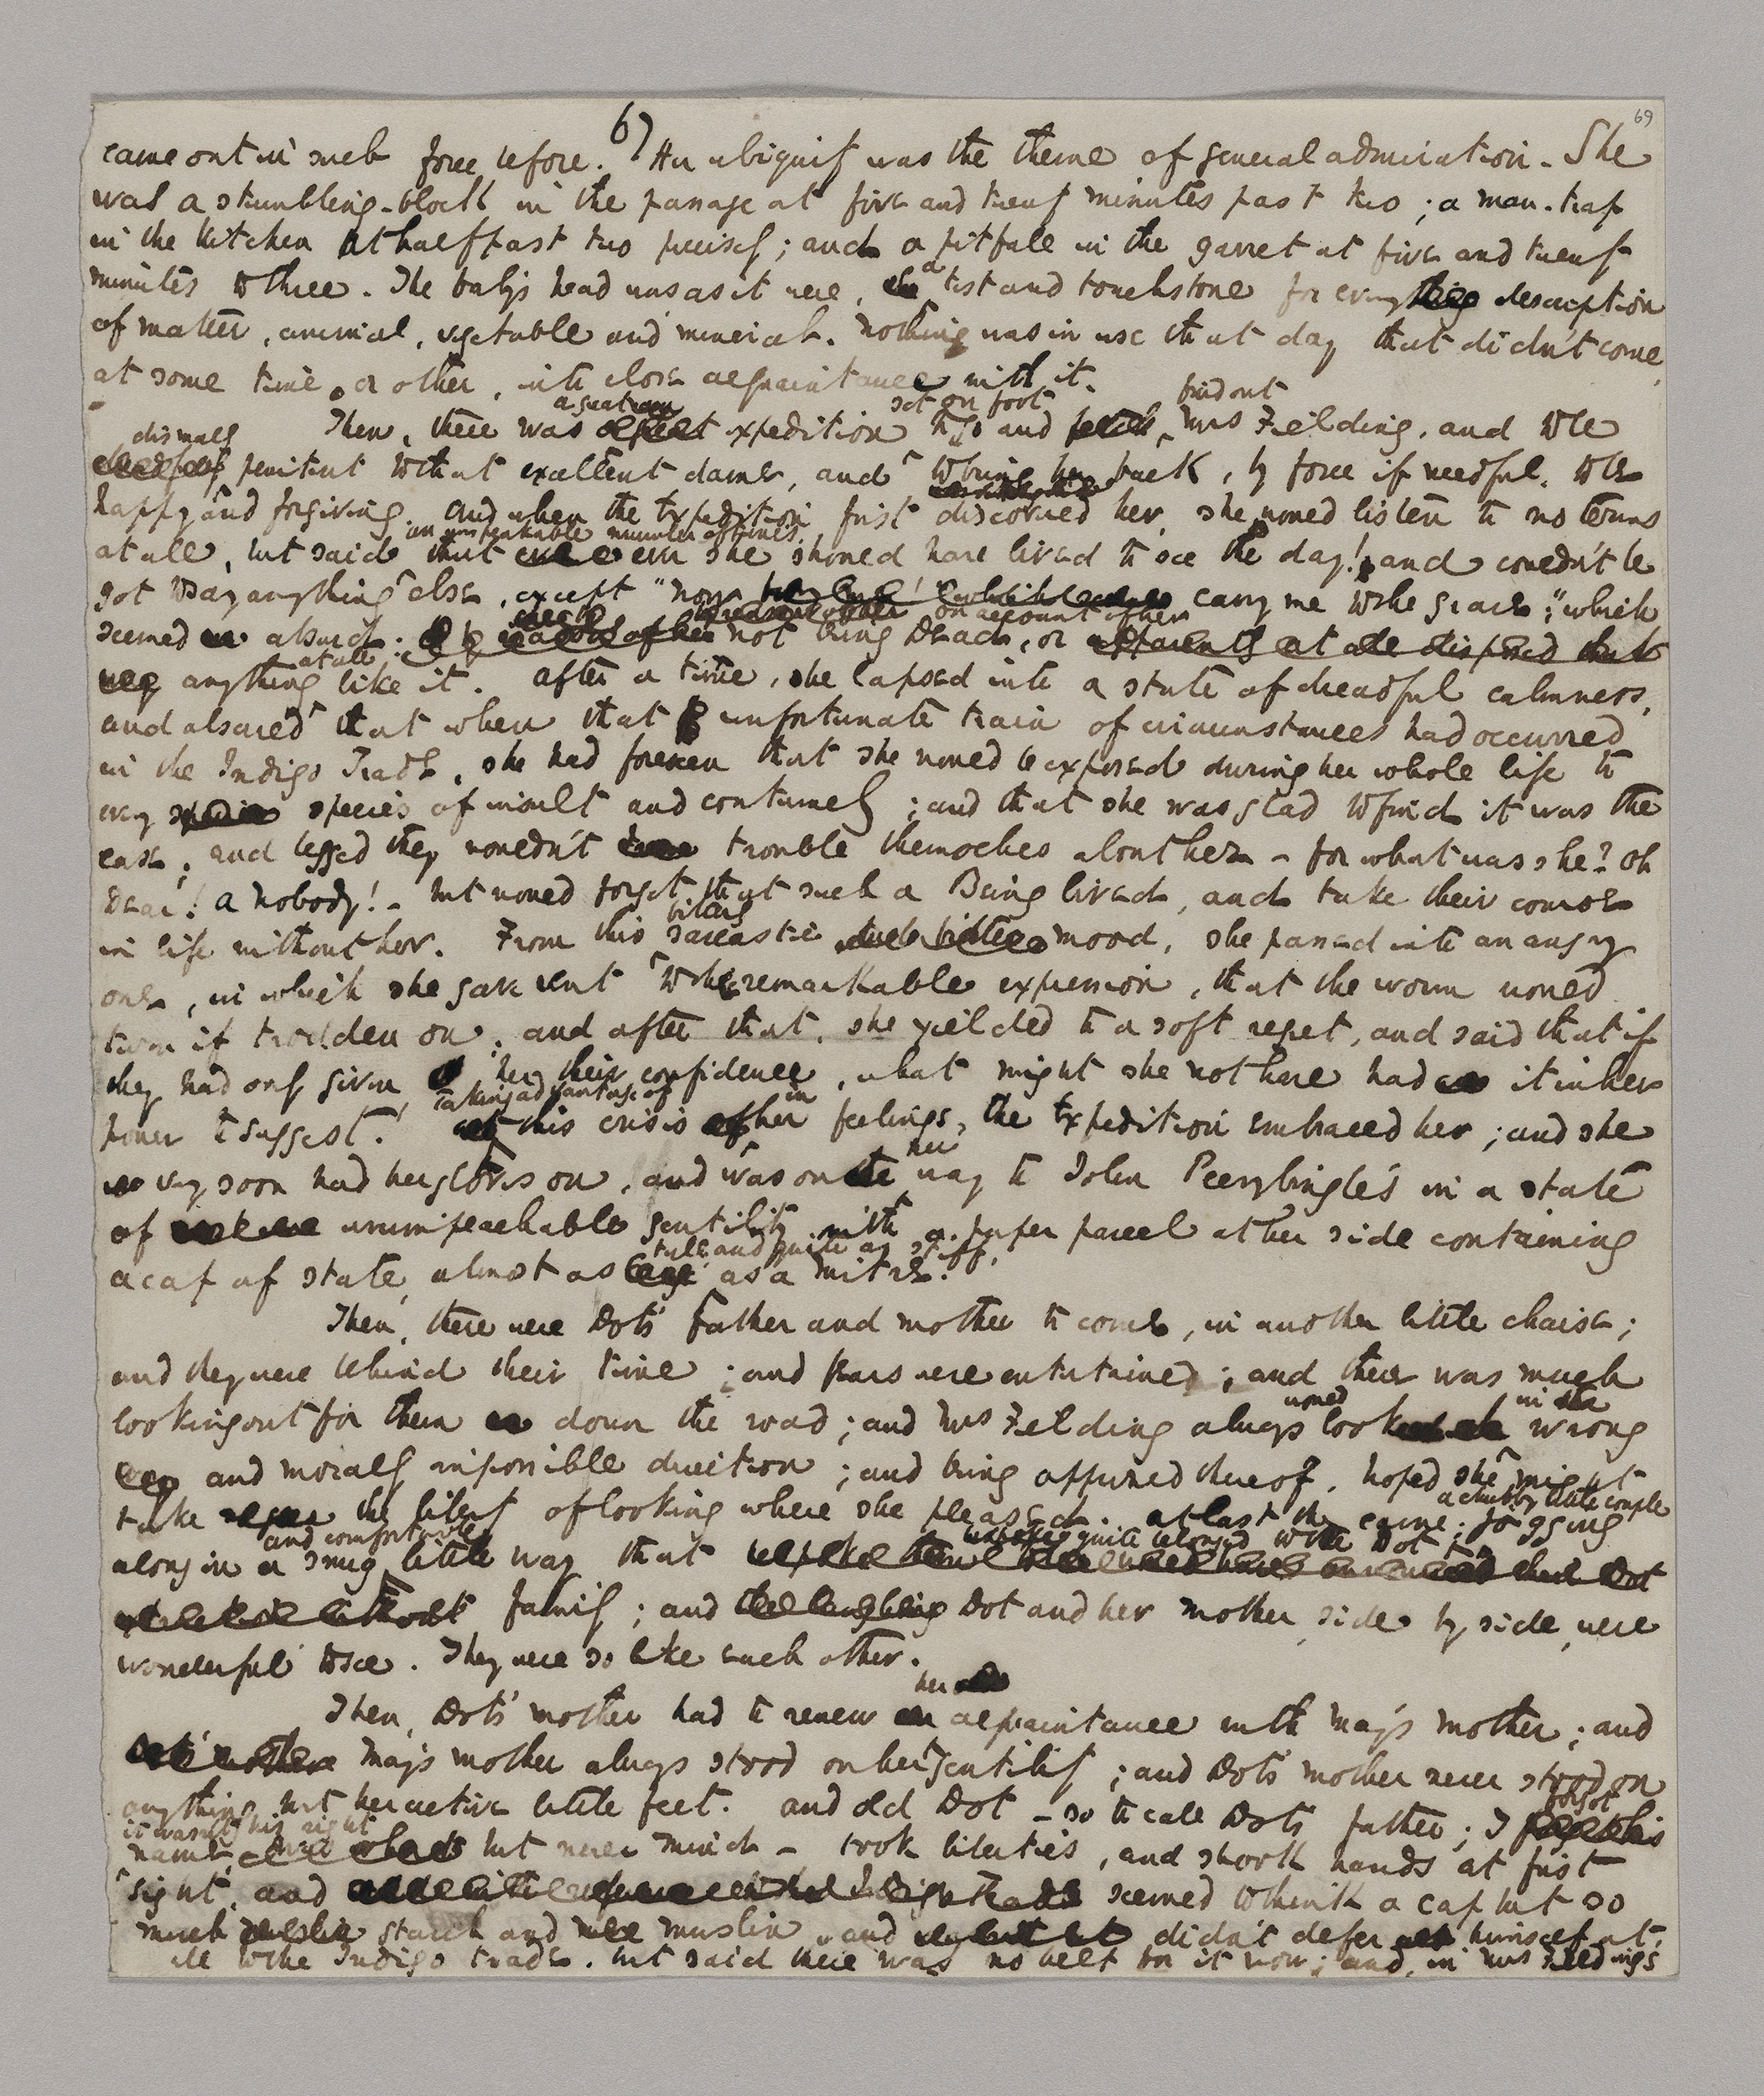 69
67
came out in such force before. Her ubiquity was the theme of general admiration. She
was a stumbling-block in the passage at five and twenty minutes past two; a man-trap
in the kitchen at half past two precisely; and a pitfall in the garret at five and twenty
minutes to three. The baby's head was as it were, a test and touchstone for every description
of matter, animal, vegetable and mineral. Nothing was in use that day that didn't come,
at some time or other, into close acquaintance with it.
a great set on foot find out
Then, there was expedition to go and Mrs Fielding, and to be
dismally
penitent to that excellent dame, and to bring her back, by force if needful, to be
happy and forgiving. And when the Expedition first discovered her, she would listen to no terms
an unspeakable number of times,
at all, but said that ever she should have lived to see the day! and couldn't be
got to say anything else, except "now carry me to the grave;" which
seemed absurd: on account of her not being dead, or
at all
anything like it. After a time, she lapsed into a state of dreadful calmness,
and observed that when that unfortunate train of circumstances had occurred
in the Indigo Trade, she had foreseen that she would be exposed during her whole life to
every species of insult and contumely; and that she was glad to find it was the
case; and begged they wouldn't trouble themselves about her - for what was she? Oh
dear! a nobody! - but would forget that such a Being lived, and take their course
bitterly
in life without her. From this sarcastic mood, she passed into an angry
one, in which she gave vent to the remarkable expression, that the worm would
turn if trodden on; and after that, she yielded to a soft regret, and said that if
they had only given her their confidence, what might she not have had it in her
Taking advantage of in
power to suggest! this crisis her feelings, the Expedition embraced her; and she
her
very soon had her gloves on, and was on way to John Peerybingle's in a state
of unimpeachable gentility, with a paper parcel at her side containing
tall and quite as stiff,
a cap of state, almost as as a mitre.
Then, there were Dot's father and mother to come, in another little chaise;
and they were behind their time; and fears were entertained; and there was much
looking out for them down the road; and Mrs Fielding always would look in the wrong
and morally impossible direction; and being apprised thereof, hoped she might
take the liberty of looking where she pleased. At last they came; a chubby little couple jogging
and comfortable
along in a snug little way that quite belonged to the Dot
family; and Dot and her mother, side by side, were
wonderful to see. They were so like each other.
her
Then, Dot's mother had to renew acquaintance with May's mother; and
May's mother always stood on her gentility; and Dot's mother never stood on
anything but her active little feet. And old Dot - so to call Dot's father; I forgot
it wasn't his right
name, but never mind - took liberties, and shook hands at first
sight, and seemed to think a cap but so
much starch and muslin, and didn't defer himself at
all to the Indigo trade, but said there was no help for it now; and, in Mrs Fieldings